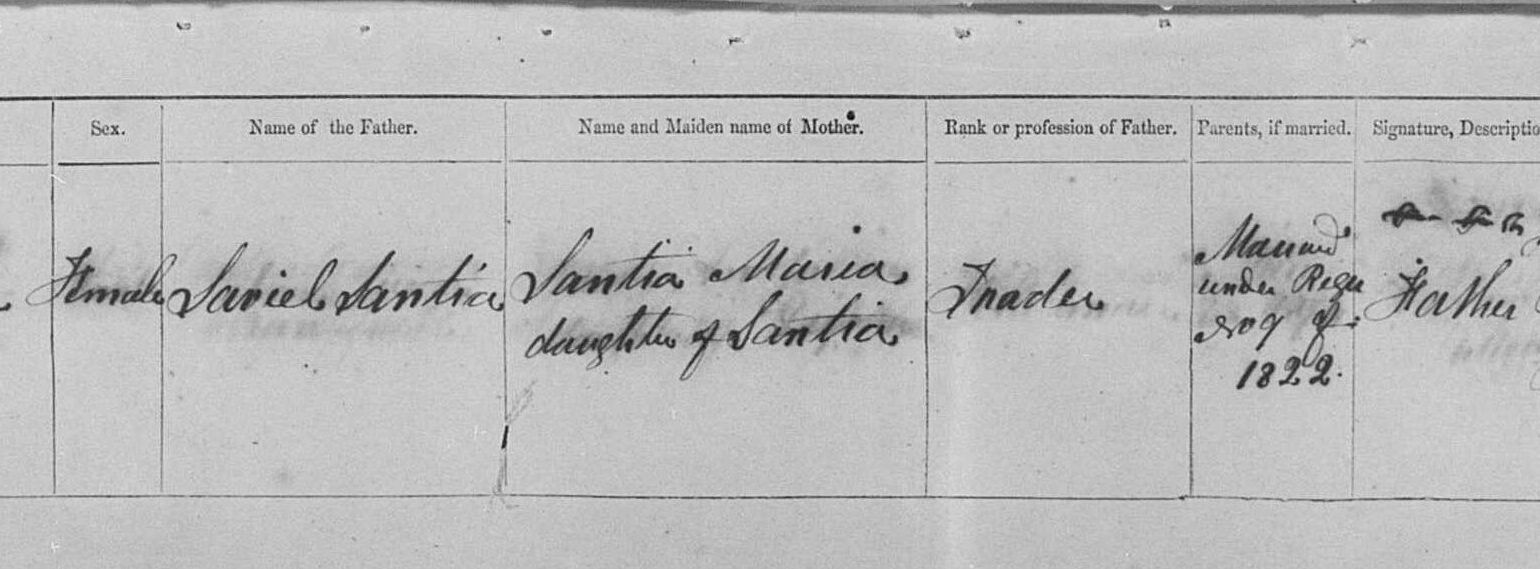 Sex.
Name of the Father.
Name and Maiden name of Mother.
Rank or profession of Father.
Parents, if married.
Signature, Descriptio
Female
Saviel Santia
Santia Maria
daughter of Santia
Trader
Married
under Regu
No 9 of
1822.
Father